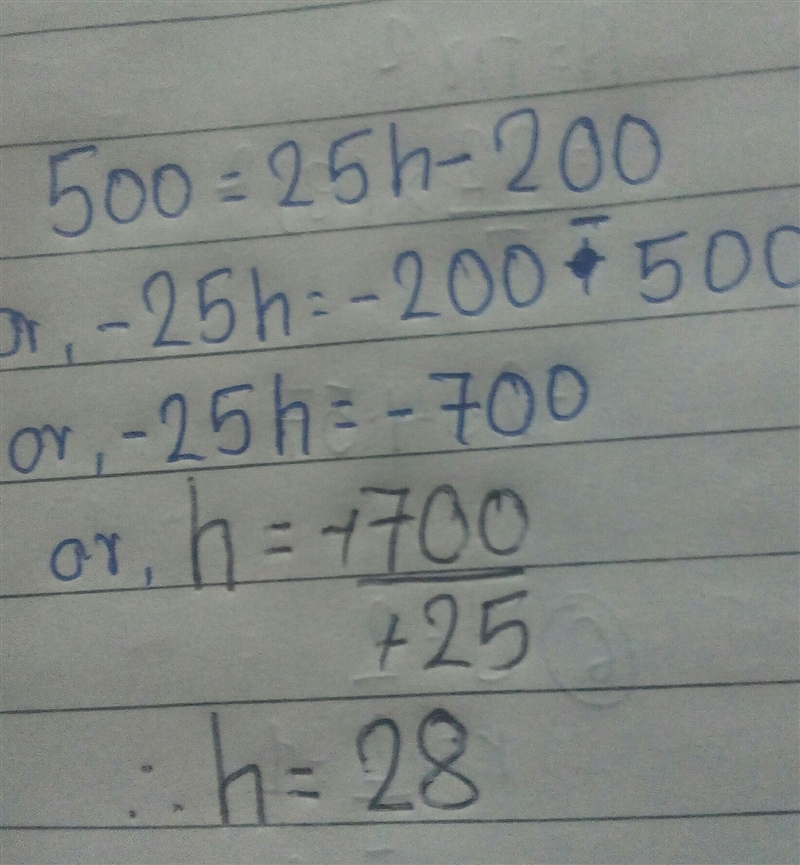 500 = 25h - 200
or, -25h = -200 - 500
or, -25h = -700
or, h = +700 / +25
∴ h = 28